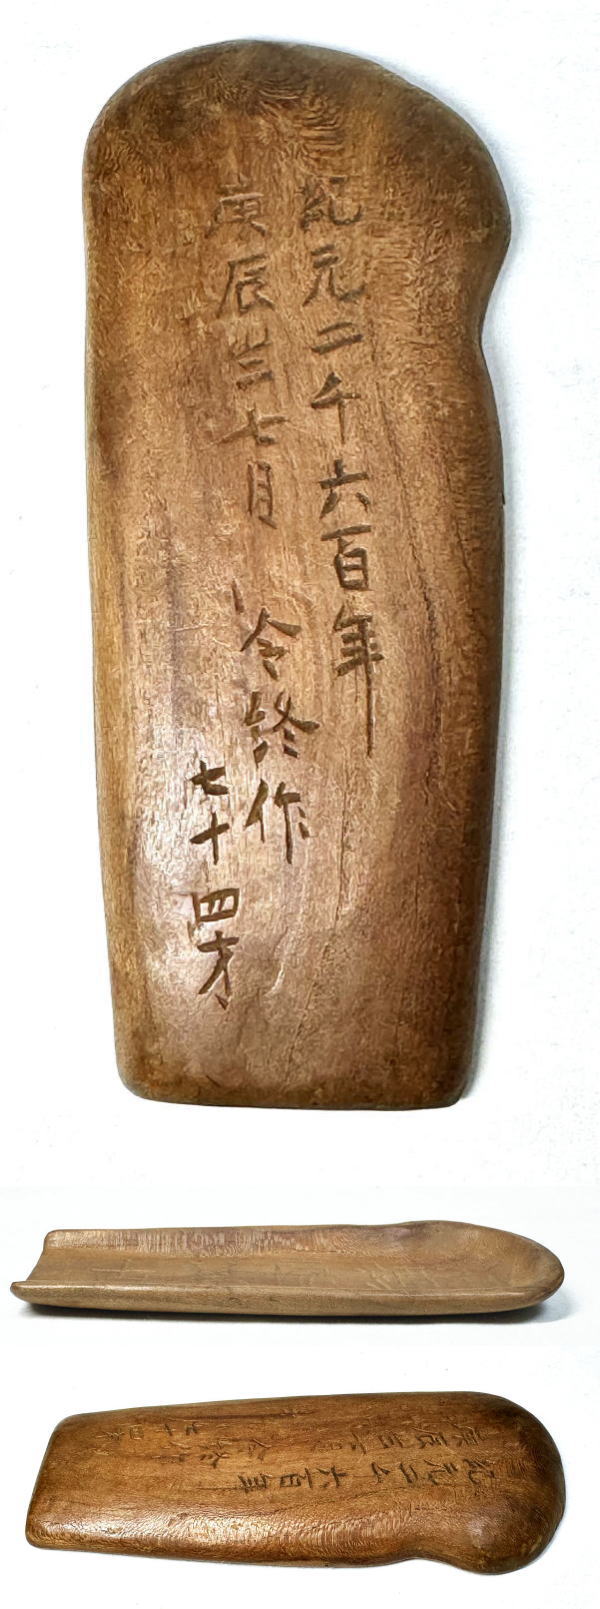 紀元二千六百年
庚辰 七月
冷終作
七十四才